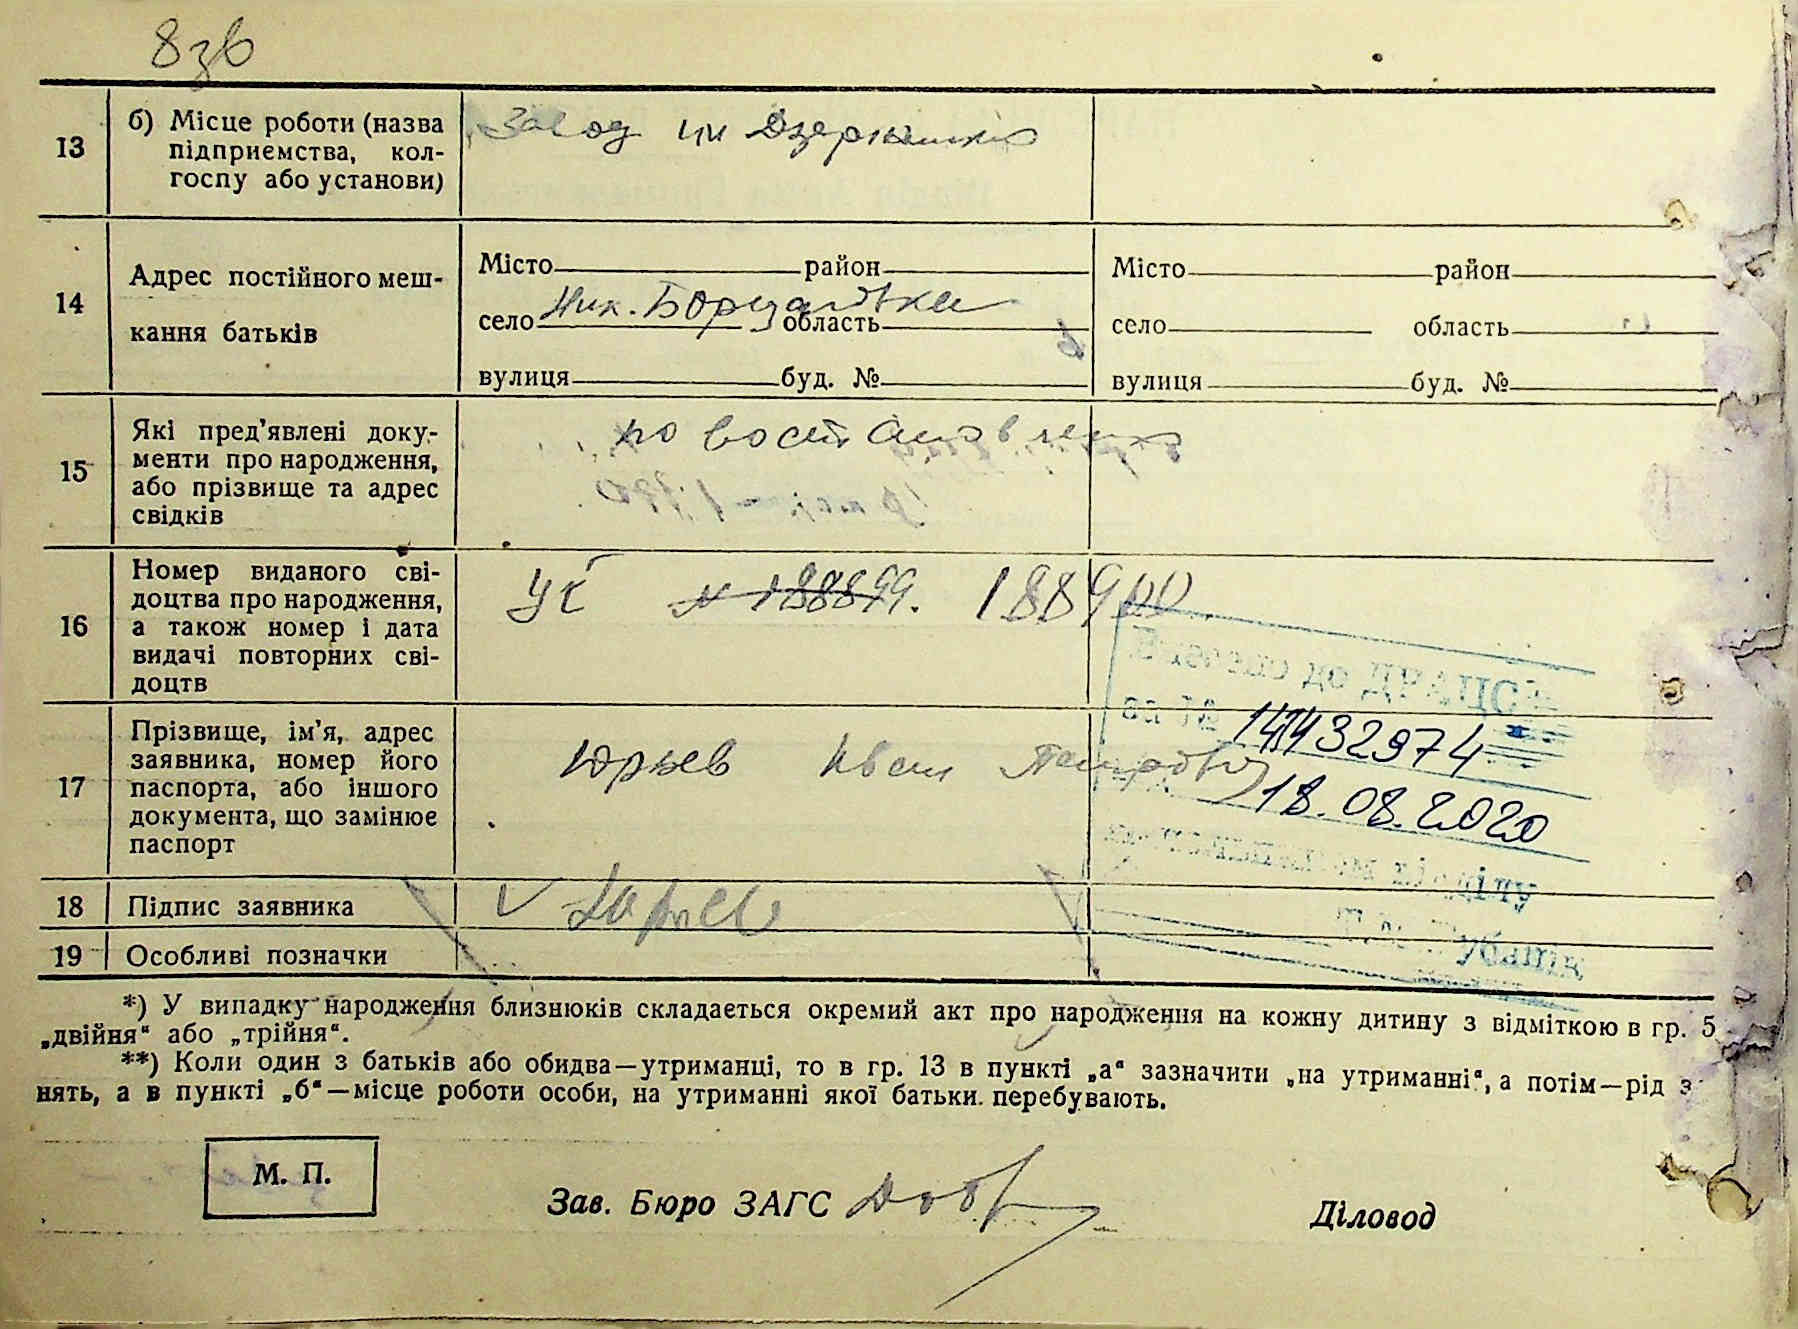 8зв
13
б) Місце роботи (назва
підприємства, кол-
госпу або установи)
Завод им Дзержинско
14
Адрес постійного меш-
кання батьків
Місто район
село Ник. Борщагівка область
вулиця буд. №
Місто район
село область
вулиця буд. №
15
Які пред’явлені доку-
менти про народження,
або прізвище та адрес
свідків
по
16
Номер виданого сві-
доцтва про народження,
а також номер і дата
видачі повторних сві-
доцтв
№ 188899. 188900
17
Прізвище, ім’я, адрес
заявника, номер його
паспорта, або іншого
документа, що замінює
паспорт
Юрьев Иван Петрович
до ДРАЦСГ
14432974
18.08.2020
18
Підпис заявника
19
Особливі позначки
*) У випадку народження близнюків складається окремий акт про народження на кожну дитину з відміткою в гр. 5
„двійня“ або „трійня“.
**) Коли один з батьків або обидва—утриманці, то в гр. 13 в пункті „а“ зазначити „на утриманні“, а потім—рід з
нять, а в пункті „б“—місце роботи особи, на утриманні якої батьки перебувають.
М. П.
Зав. Бюро ЗАГС
Діловод